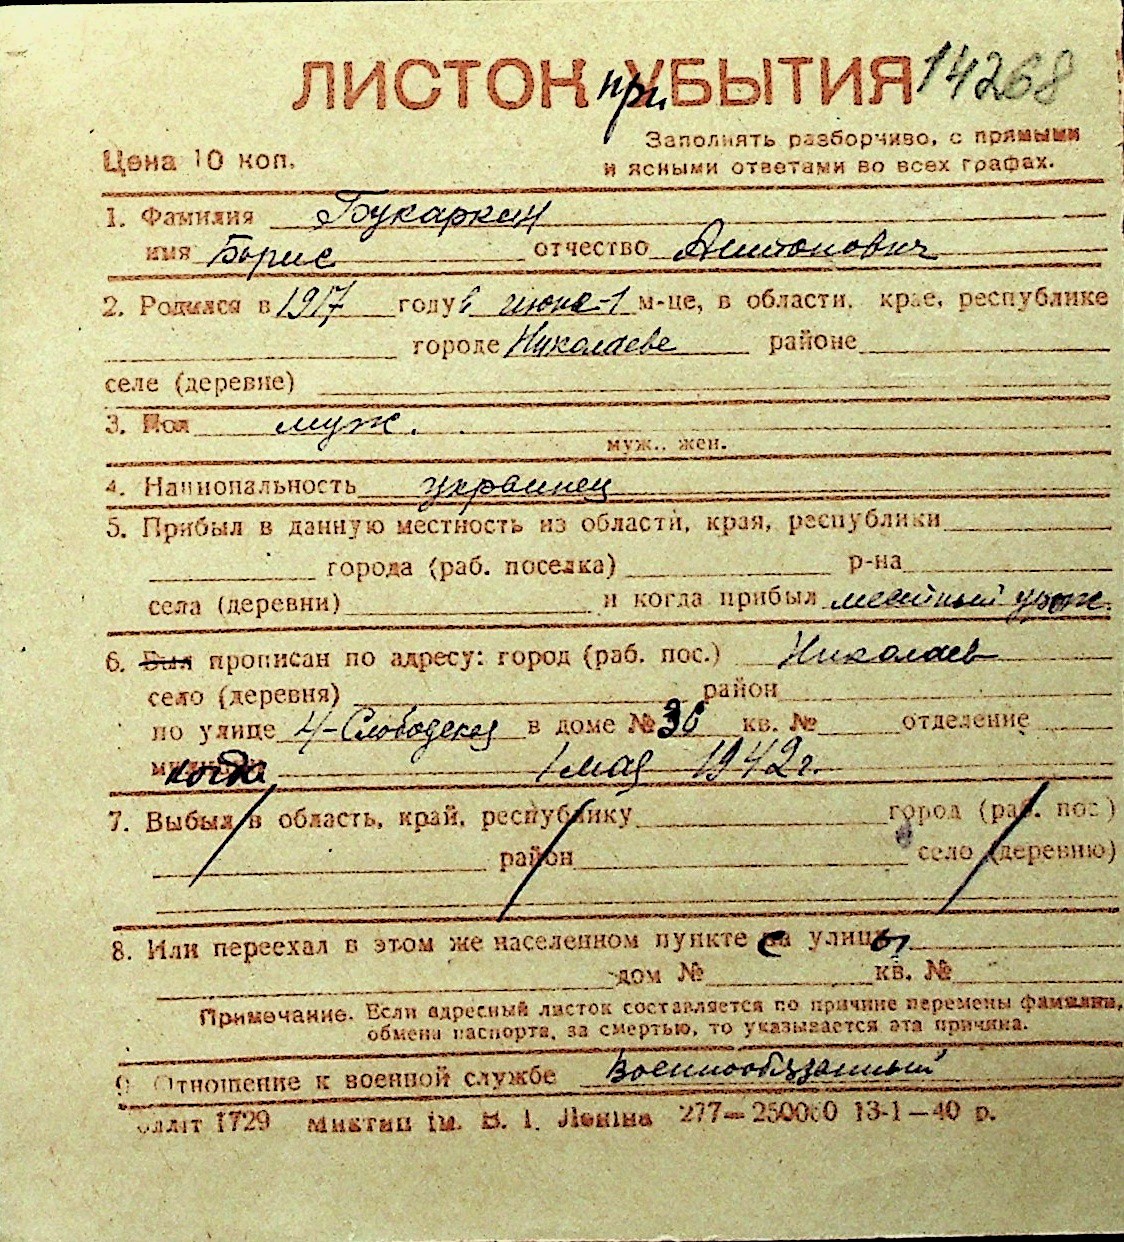 ЛИСТОК при УБЫТИЯ 14268
Цена 10 коп.
Заполнять разборчиво, с прямыми
и ясными ответами во всех графах.
1. Фамилия Букаркин
имя Борис отчество Антонович
2. Родился в 1917 году в июне-1 м-це, в области, крае, республике
городе Николаеве районе
селе (деревне)
3. Пол муж.
муж., жен.
4. Национальность украинец
5. Прибыл в данную местность из области, края, республики
города (раб. поселка) р-на
села (деревни) и когда прибыл местный урож.
6. Был прописан по адресу: город (раб. пос.) Николаев
село (деревня) район
по улице 4-Слободская в доме № 36 кв. № отделение
когда 1 мая 1942 г.
7. Выбыл в область, край, республику город (раб. пос.)
район село (деревню)
8. Или переехал в этом же населенном пункте с улицы
дом № кв. №
Примечание. Если адресный листок составляется по причине перемены фамилии,
обмена паспорта, за смертью, то указывается эта причина.
9 Отношение к военной службе Военнообязанный
1729 ім. В. І. Леніна 277—250000 13-1—40 р.